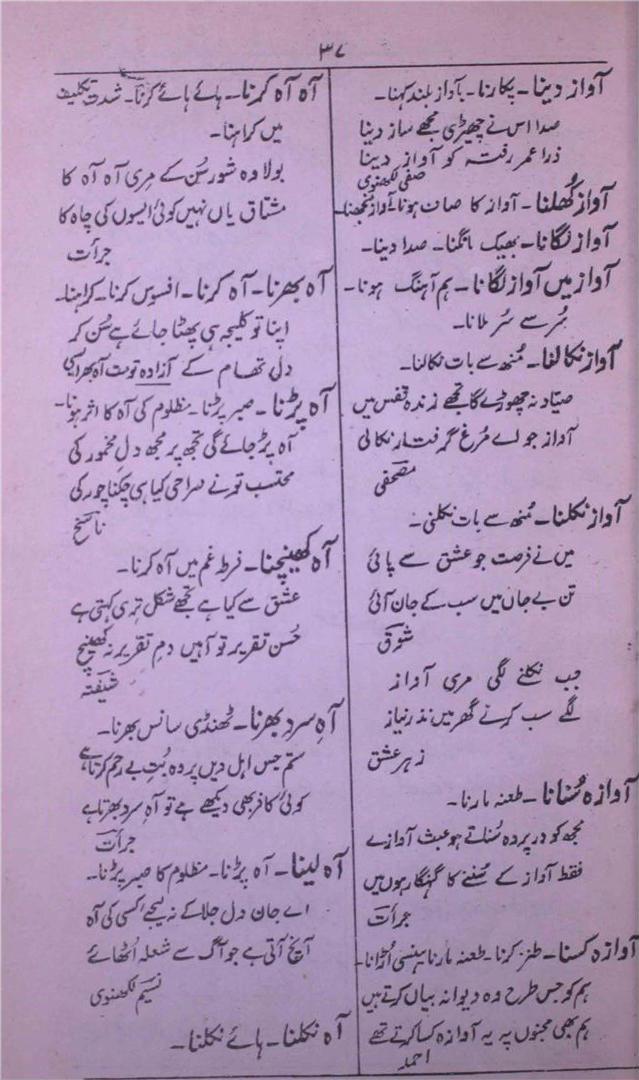 ۳۷
آواز دینا۔ پکارنا۔ بآواز بلند کہنا۔
صدا اس نے چھیڑی مجھے ساز دینا
ذرا عمر رفتہ کو آواز دینا
صفی لکھنوی
آواز کُھلنا۔ آواز کا صاف ہونا۔ آواز سمجھنا۔
آواز لگانا۔ بھیک مانگنا۔ صدا دینا۔
آواز میں آواز لگانا۔ ہم آہنگ ہونا۔
سُر سے سُر ملانا۔
آواز نکالنا۔ مُنھ سے بات نکالنا۔
صیّاد نہ چھوڑے گا تجھے زندہ قفس میں
آواز جو اے مُرغ گرفتار نکالی
مصحفی
آواز نکلنا۔ مُنھ سے بات نکلنی۔
میں نے فرصت جو عشق سے پائی
تن بے جاں میں سب کے جان آئی
شوق
جب نکلنے لگی مری آواز
لگے سب کرنے گھر میں نذر نیاز
زہر عشق
آوازہ سُنانا۔ طعنہ مارنا۔
مجھ کو در پردہ سُناتے ہو عبث آوازے
فقط آواز کے سُننے کا گنہگار ہوں میں
جرأت
آوازہ کسنا۔ طنز کرنا۔ طعنہ مارنا۔ ہنسی اُڑانا۔
ہم کو جس طرح وہ دیوانہ بیاں کرتے ہیں
ہم بھی مجنوں پہ یہ آوازہ کسا کرتے تھے
احمد
آہ آہ کرنا۔ ہائے ہائے کرنا۔ شدت تکلیف
میں کراہنا۔
بولا وہ شور سُن کے مِری آہ آہ کا
مشتاق یاں نہیں کوئی ایسوں کی چاہ کا
جرأت
آہ بھرنا۔ آہ کرنا۔ افسوس کرنا۔ کراہنا۔
اپنا تو کلیجہ ہی پھٹا جائے ہے سُن کر
دل تھام کے آزادہ تو مت آہ بھرا کی
آہ پڑنا۔ صبر پڑنا۔ مظلوم کی آہ کا اثر ہونا۔
آہ پڑ جائے گی تجھ پر مجھ دلِ مخمور کی
محتسب تو نے صراحی کیا ہی چکنا چور کی
ناسخ
آہ کھینچنا۔ فرط غم میں آہ کرنا۔
عشق سے کیا ہے تجھے شکل تری کہتی ہے
حُسن تقریر تو آہیں دمِ تقریر نہ کھینچ
شیفتہ
آہِ سرد بھرنا۔ ٹھنڈی سانس بھرنا۔
ستم جس اہل دیں پر وہ بُتِ بے رحم کرتا ہے
کوئی کافر بھی دیکھے ہے تو آہِ سرد بھرتا ہے
جرأت
آہ لینا۔ آہ پڑنا۔ مظلوم کا صبر پڑنا۔
اے جان دل جلا کے نہ لیجے کسی کی آہ
آنچ آتی ہے جو آگ سے شعلہ اُٹھائے
نسیم لکھنوی
آہ نکلنا۔ ہائے نکلنا۔